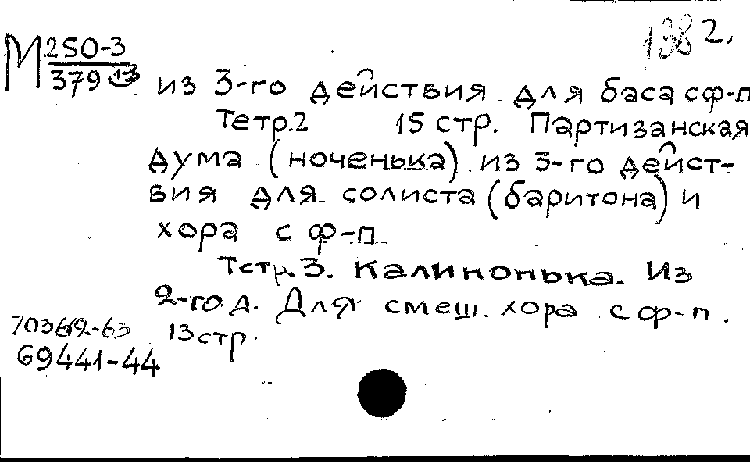 1382.
М 250-3
379
из 3-го действия для баса с ф-п
Тетр.2 15 стр. Партизанская
дума (ноченька) из 3-го дейст-
вия для солиста (баритона) и
хора с ф-п
Тетр. 3. Калинонька. Из
2-го д. Для смеш. хора с ф-п.
70369-63 13 стр.
69441-44